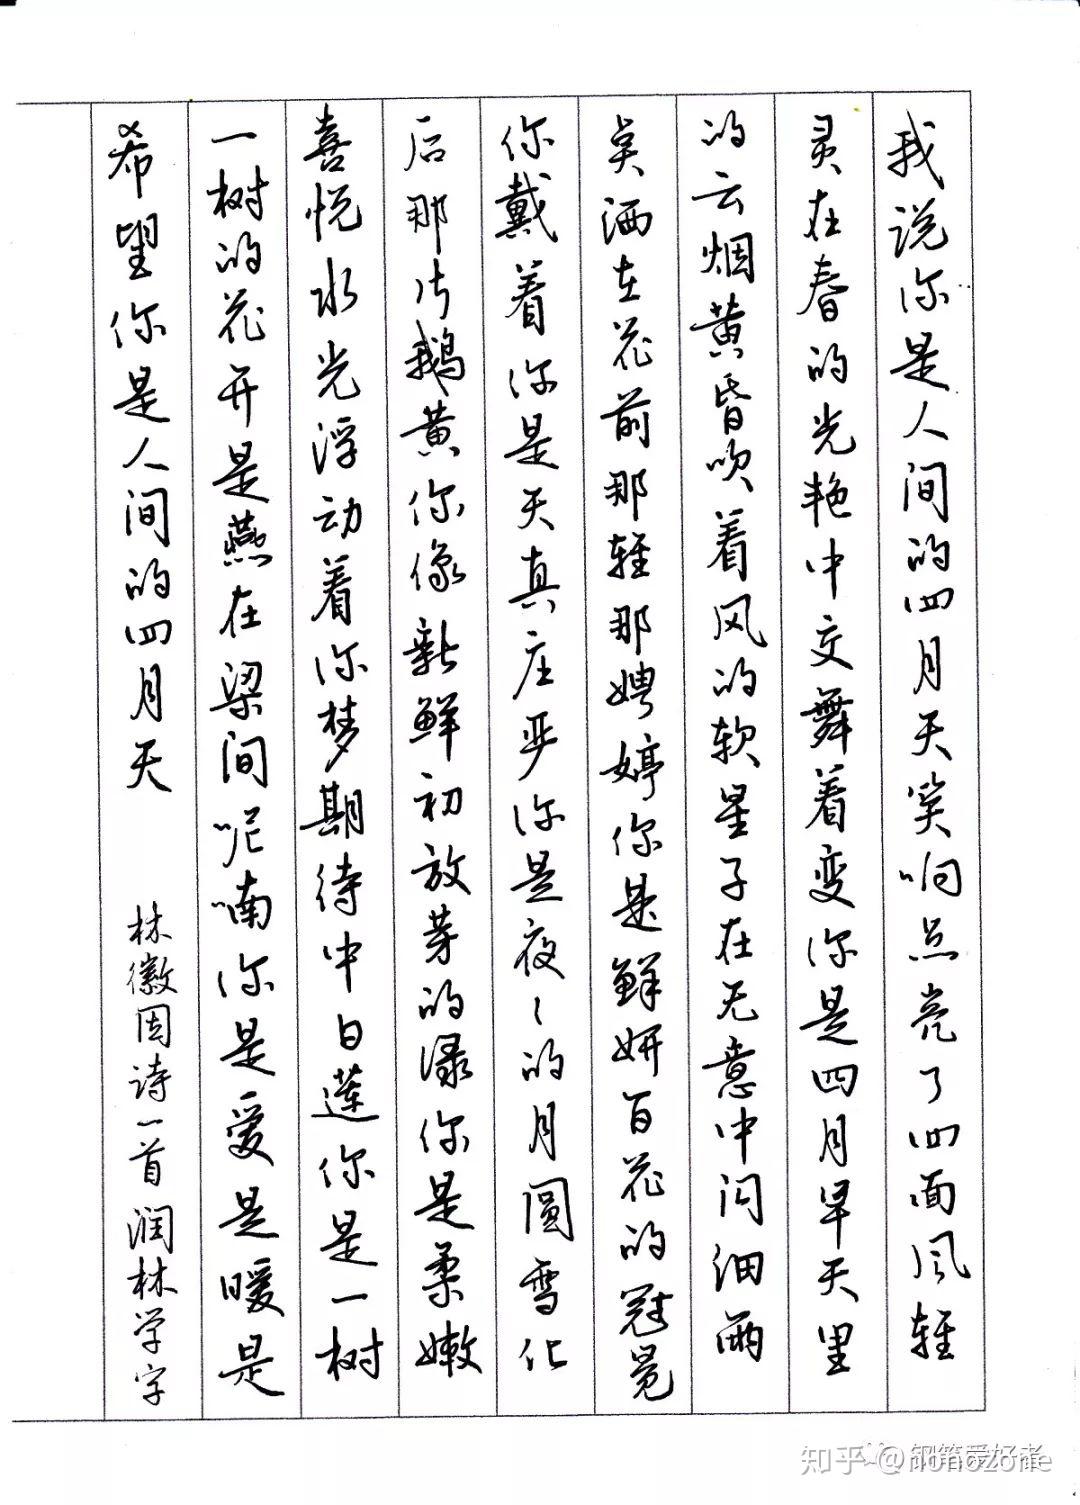 我说你是人间的四月天笑响点亮了四面风轻
灵在春的光艳中交舞着变你是四月早天里
的云烟黄昏吹着风的软星子在无意中闪细雨
点洒在花前那轻那娉婷你是鲜妍百花的冠冕
你戴着你是天真庄严你是夜〻的月圆雪化
后那片鹅黄你像新鲜初放芽的渌你是柔嫩
喜悦水光浮动着你梦期待中白莲你是一树
一树的花开是燕在梁间呢喃你是爱是暖是
希望你是人间的四月天
林徽因诗一首 润林学字
知乎 @nonozone
钢笔爱好者